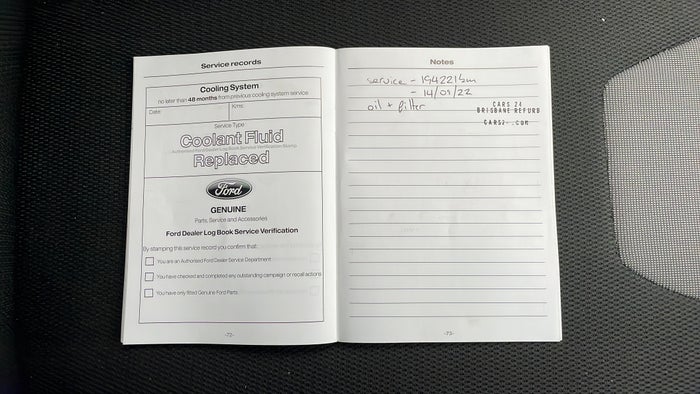 Service records
Cooling System
no later than 48 months from previous cooling system service
Date:
Kms:
Service Type
Coolant Fluid
Authorised Ford Dealer Log Book Service Verification Stamp
Replaced
Ford
GENUINE
Parts, Service and Accessories
Ford Dealer Log Book Service Verification
By stamping this service record you confirm that:
You are an Authorised Ford Dealer Service Department
You have checked and completed any outstanding campaign or recall actions
You have only fitted Genuine Ford Parts
-72-
Notes
service - 194221km
- 14/01/22
oil + filter
CARS 24
BRISBANE REFURB
-73-